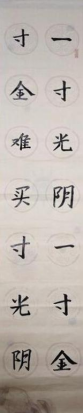 一寸光阴一寸金
寸金难买寸光阴